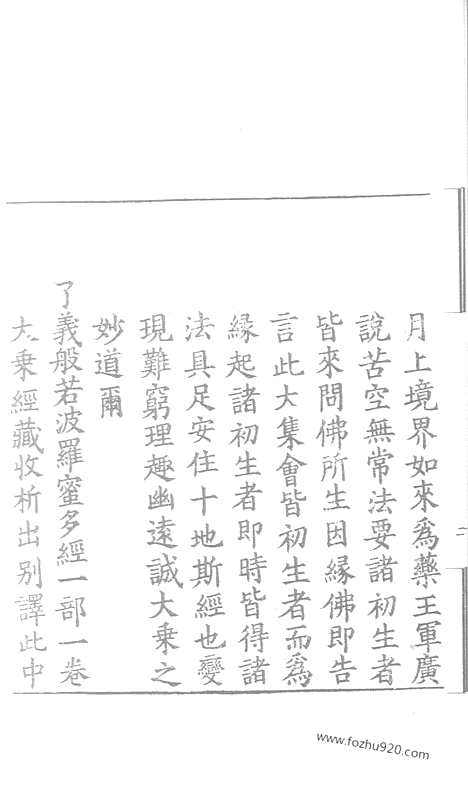 月上境界如來爲藥王軍廣
說苦空無常法要諸初生者
皆來問佛所生因緣佛即告
言此大集會皆初生者而爲
緣起諸初生者即時皆得諸
法具足安住十地斯經也變
現難窮理趣幽遠誠大乗之
妙道爾
了義般若波羅蜜多經一部一卷
大乗經藏收析出别譯此中
www.fozhu920.com